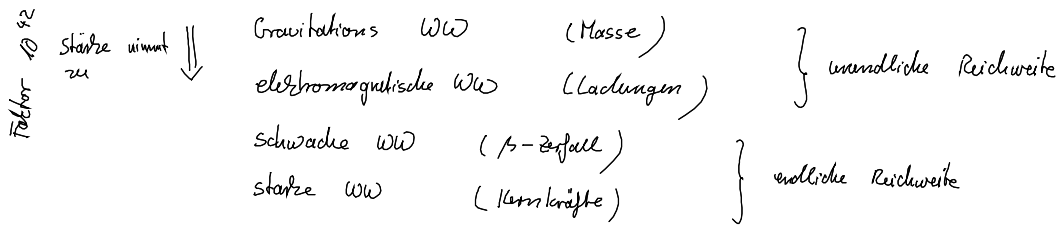 Faktor 10^42
Stärke nimmt zu
Gravitations WW (Masse)
elektromagnetische WW (Ladungen)
} unendliche Reichweite
schwache WW (β-Zerfall)
starke WW (Kernkräfte)
} endliche Reichweite